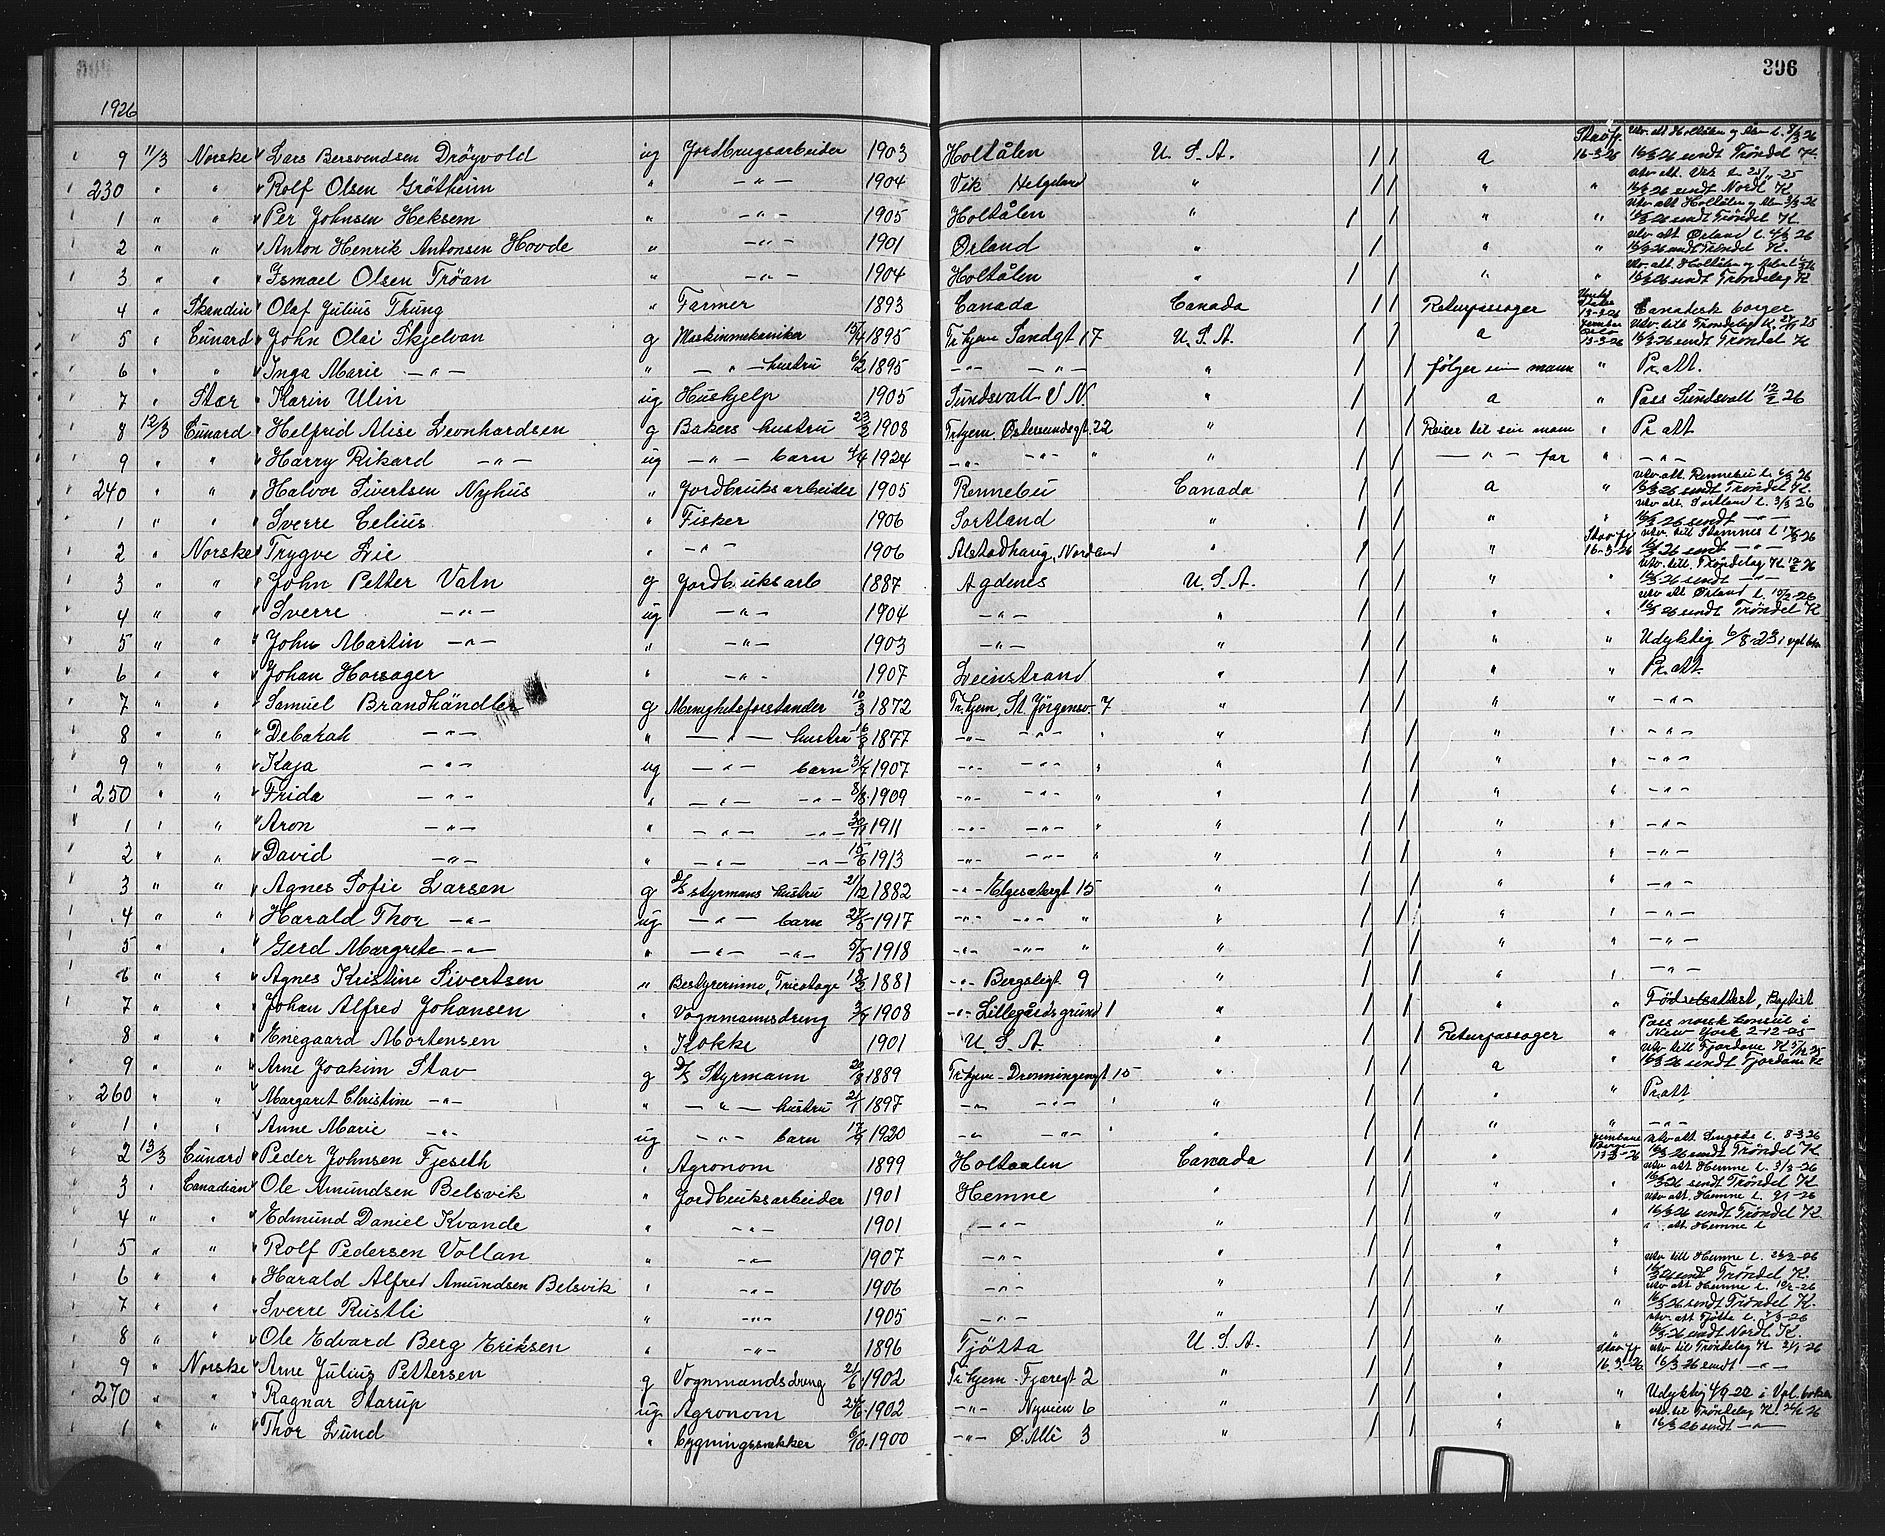 306
1926
9 11/3 Norske Lars Bersvendsen Drøyvold ug Jordbrugsarbeider 1903 Holtålen U. S. A. / / a Stavfj. 16-3-26 Utv. att Holtålen og Ålen L. 3/3 26 16/3 26 sendt Trøndel K.
230 " " Rolf Olsen Grøtheim " —"— 1904 Vik Helgeland " / / " " utv. att. Vik L. 25 16/3 26 sendt Nordl K
1 " " Per Johnsen Heksem " —"— 1905 Holtålen " / / " " Utv att Holtålen og Ålen 3/3-26 16/3 26 sendt Trøndel K
2 " " Anton Henrik Antonsen Hovde " —"— 1901 Ørland " / / " " utv. att Ørland L. 4/3 26 16/3 26 sendt Trøndel K.
3 " " Ismael Olsen Trøan " —"— 1904 Holtålen " / / " " utv. att. Holtålen og Ålen L 26 16/3 26 sendt Trøndelag K
4 " Skandin Olaf Julius Thung " Farmer 1893 Canada Canada / / Returpassager 13-3-26 Canadisk borger
5 " Cunard John Olai Skjelvan g Maskinmekaniker 15/4 1895 Tr.hjem Sandgt 17 U. S. A. / / a Jernban Oslo 13-3-26 Utv. till Trøndelag K. 25 16/3 26 sendt Trøndel K
6 " " Inga Marie —"— " —"— hustru 6/2 1895 —"— —"— " / / følger sin mann " Pr. att.
7 " Star Karin Ulin ug Huskjelp 1905 Sundsvall V N. " / / a " Pass Sundsvall 12/2 26
8 12/3 Cunard Helfrid Alise Leonhardsen g Bakers hustru 23/2 1908 Tr.hjem. Østersundsgt. 22 " / / Reiser til sin mann " Pr att
9 " " Harry Rikard —"— ug —"— barn 4/4 1924 —"— —"— " " / / —"— far " —"—
240 " " Halvor Sivertsen Nyhus " Jordbruksarbeider 1905 Rennebu Canada / / a " utv att. Rennebu L. 6/3 26 16/3 26 sendt Trøndel K.
1 " " Sverre Celius " Fisker 1906 Sortland " / / " " utv att. Sortland L. 3/3 26 16/3 26 sendt —"—
2 " Norske Trygve Lie " —"— 1906 Alstadhaug, Nordland " / / " Stavfj 16-3-26 utv. till Stamnes L 26 16/3 26 sendt —"—
3 " " John Petter Vatn g Jordbruksarb 1887 Agdenes U. S. A. / / " " utv. till. Trøndelag K 12/2 26 16/3 26 sendt —"—
4 " " Sverre —"— ug —"— 1904 —"— " / / " " utv att Ørland L. 19/2-26 16/3 26 sendt Trøndel K
5 " " John Martin —"— " —"— 1903 —"— " / / " " Udyktig 6/8-23 i vpl bok
6 " " Johan Horsager " —"— 1907 Leinstrand " / / " " Pr. att.
7 " " Samuel Brandhändler g Menighetsforstander 10/3 1872 Tr.hjem, St. Jørgensv. 7 " / / " " —"—
8 " " Debarah —"— " —"— hustru 16/8 1877 —"— —"— " " / / " " —"—
9 " " Kaja —"— ug —"— barn 31/7 1907 —"— —"— " " / / " " —"—
250 " " Frida —"— " —"— —"— 8/8 1909 —"— —"— " " / / " " —"—
1 " " Aron —"— " —"— —"— 30/11 1911 —"— —"— " " / / " " —"—
2 " " David —"— " —"— —"— 15/6 1913 —"— —"— " " / / " " —"—
3 " " Agnes Sofie Larsen g D/S styrmans hustru 21/12 1882 —"— Elgesetergt 15 " / / " " —"—
4 " " Harald Thor —"— ug —"— barn 27/5 1917 —"— —"— " " / / " " —"—
5 " " Gerd Margrete —"— " —"— —"— 5/5 1918 —"— —"— " " / / " " —"—
6 " " Agnes Kristine Sivertsen " Bestyrerinne, Tricotage 18/2 1881 —"— Bergsligt. 9 " / / " " —"—
7 " " Johan Alfred Johansen " Vognmannsdreng 3/8 1908 —"— Lillegårdsgrund 1 " / / " " Fødselsattest, Baptist
8 " " Enegaard Mortensen " Kokke 1901 U. S. A. " / / Returpassager " Pass norsk konsul i New York 2-12-25
9 " " Arne Joakim Stav g D/S Styrmann 20/8 1889 Tr.hjem - Dronningengt 15 " / / a " utv. till Fjordane K 25 16/3 26 sendt Fjordane K
260 " " Margaret Christine —"— " —"— hustru 21/1 1897 —"— —"— " " / / " " Pr. att
1 " " Anne Marie —"— ug —"— barn 17/9 1920 —"— —"— " " / / " " —"—
2 13/3 Cunard Peder Johnsen Fjeseth " Agronom 1899 Holtaalen Canada / / " Jernbane Bergen 13-3-26 utv att. Singsås L. 8-3 26 16/3 26 sendt Trøndel K
3 " Canadian Ole Amundsen Belsvik " Jordbruksarbeider 1901 Hemne " / / " " utv att Hemne L. 3/3-26 16/3-26 sendt Trøndel K
4 " " Edmund Daniel Kvande " —"— 1901 —"— " / / " " utv att. Hemne L. 9/1-26 16/3 26 sendt Trøndel K.
5 " " Rolf Pedersen Vollan " —"— 1907 —"— " / / " " " att Hemne L
6 " " Harald Alfred Amundsen Belsvik " —"— 1906 —"— / / " utv till Hemne L. 26/2-26 16/3 26 sendt Trøndel K.
7 " " Sverre Rustli " —"— 1905 —"— " / / " " utv att Hemne L. 19/2-26 16/3 26 sendt Trøndel K.
8 " " Ole Edvard Berg Eriksen " —"— 1896 Tjøtta U. S. A. / / " " utv. att Tjøtta L. 3-26 16/3-26 sendt Nordl K.
9 " Norske Arne Julius Pettersen g Vognmandsdreng 21/6 1902 Tr.hjem - Fjæregt 2 " / / " Stav fj 16.3.26 utv til Trøndelag K 21/1-26 16/3 26 sendt —"—
270 " " Ragnar Starup ug Agronom 24/6 1902 —"— Nyveien 6 " / / " " Udyktig 4/9-22 i Vpl. boken
1 " " Thor Lund " Bygningssnekker 6/10 1900 —"— Ø. Alle 3 " / / " " utv. til Trøndelag K. 26 16/3 26 sendt —"—